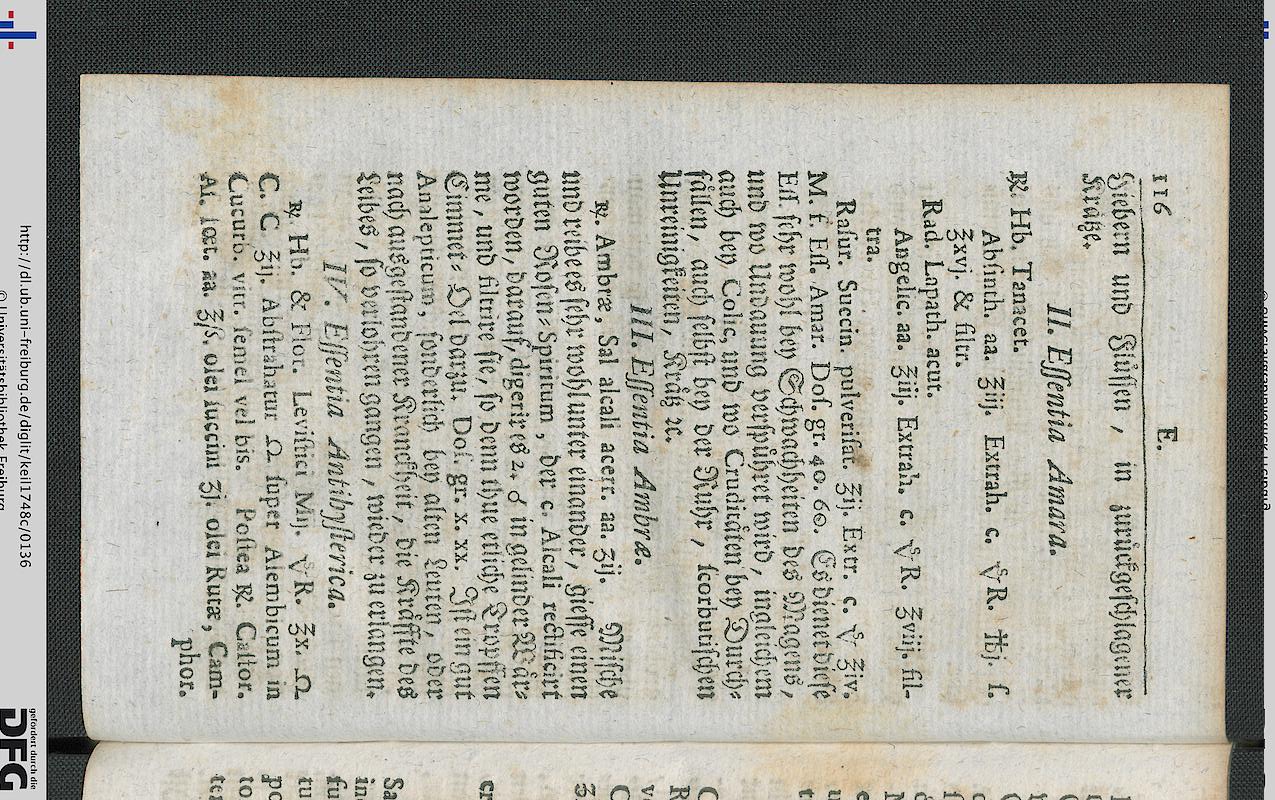 116 E.
Fiebern und Flüssen, in zurückgeschlagener
Krätze.
II. Essentia Amara.
℞. Hb. Tanacet.
Absinth. aa. ʒiij. Extrah. c. 🜄R. ℔j. s.
ʒxvj. & filtr.
Rad. Lapath. acut.
Angelic. aa. ʒij. Extrah. c. R. ʒvij. fil-
tra.
Rasur. Succin. pulverisat. ʒij. Extr. c. ʒiv.
M. f. Ess. Amar. Dos. gr. 40. 60. Es dienet diese
Ess. sehr wohl bey Schwachheiten des Magens,
und wo Undauung verspühret wird, ingleichem
auch bey Colic, und wo Cruditäten bey Durch-
fällen, auch selbst bey der Ruhr, scorbutischen
Unreinigkeiten, Krätz ꝛc.
III. Essentia Ambræ.
℞. Ambræ, Sal alcali acerr. aa. ʒij. Mische
und reibe es sehr wohl unter einander, giesse einen
guten Rosen-Spiritum, der c. Alcali rectificirt
worden, darauf, digerir es 2. ☌ in gelinder Wär-
me, und filtrire sie, so denn thue etliche Tropffen
Cimmet-Oel darzu. Dos. gr. x. xx. Ist ein gut
Analepticum, sonderlich bey alten Leuten, oder
nach ausgestandener Kranckheit, die Kräffte des
Leibes, so verlohren gangen, wieder zu erlangen.
IV. Essentia Antihysterica.
℞. Hb. & Flor. Levistici Mij. R. ʒx. Ω
C. C ʒij. Abstrahatur Ω super Alembicum in
Cucurb. vitr. semel vel bis. Postea ℞. Castor.
As. fœt. aa. ʒß. olei succini ʒj. olei Rutæ, Cam-
phor.
http://dl.ub.uni-freiburg.de/diglit/keil1748c/0136
© Universitätsbibliothek Freiburg
gefördert durch die
DFG